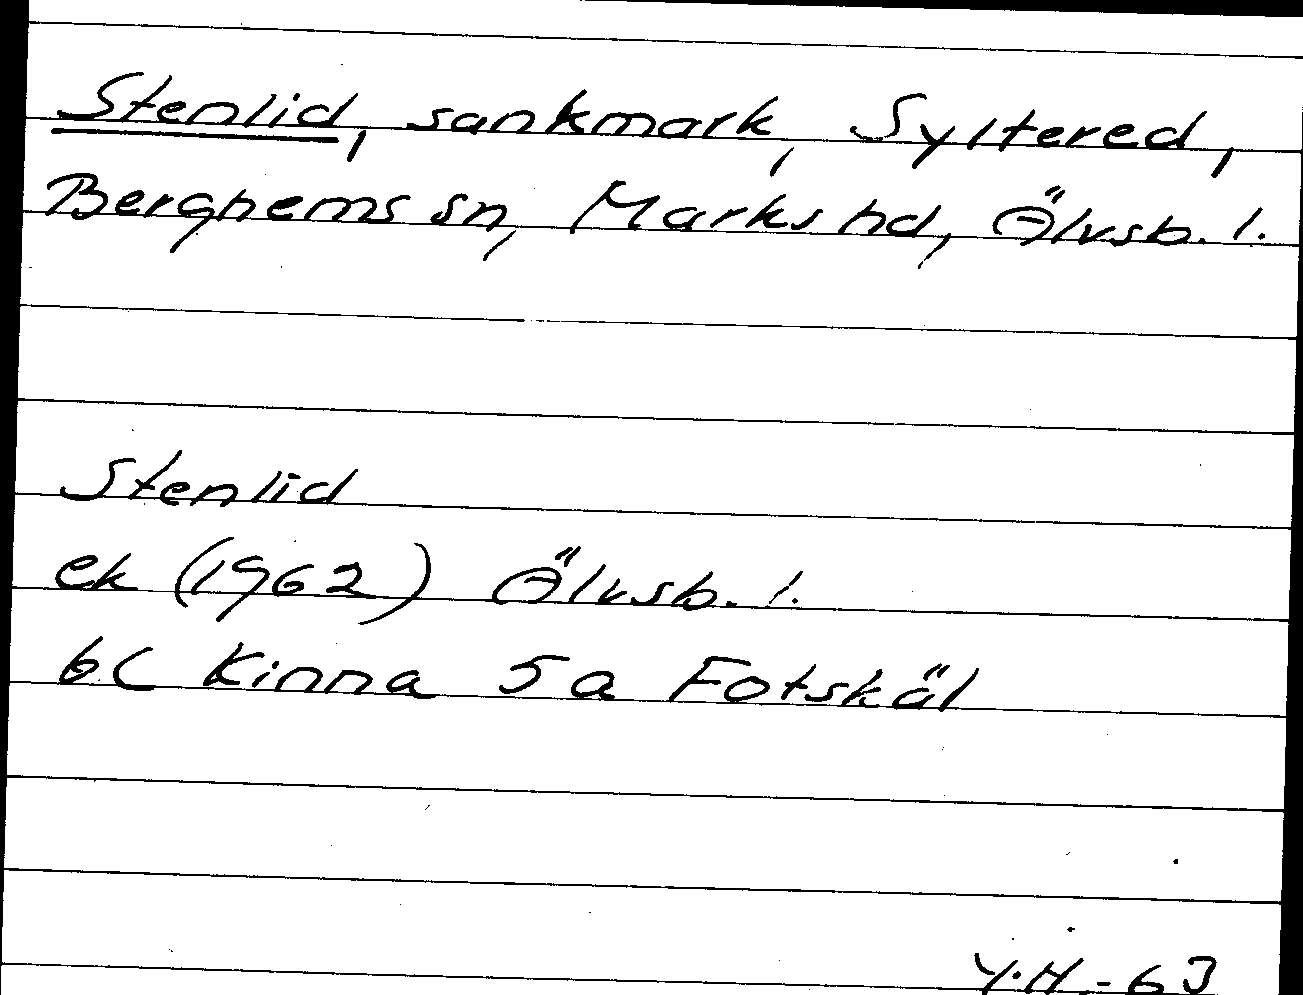 Stenlid, sankmark, Syltered,
Berghems sn, Marks hd, Älvsb. l.
Stenlid
ek (1962) Älvsb. l.
6C Kinna 5a Fotskäl
Y.H.-63